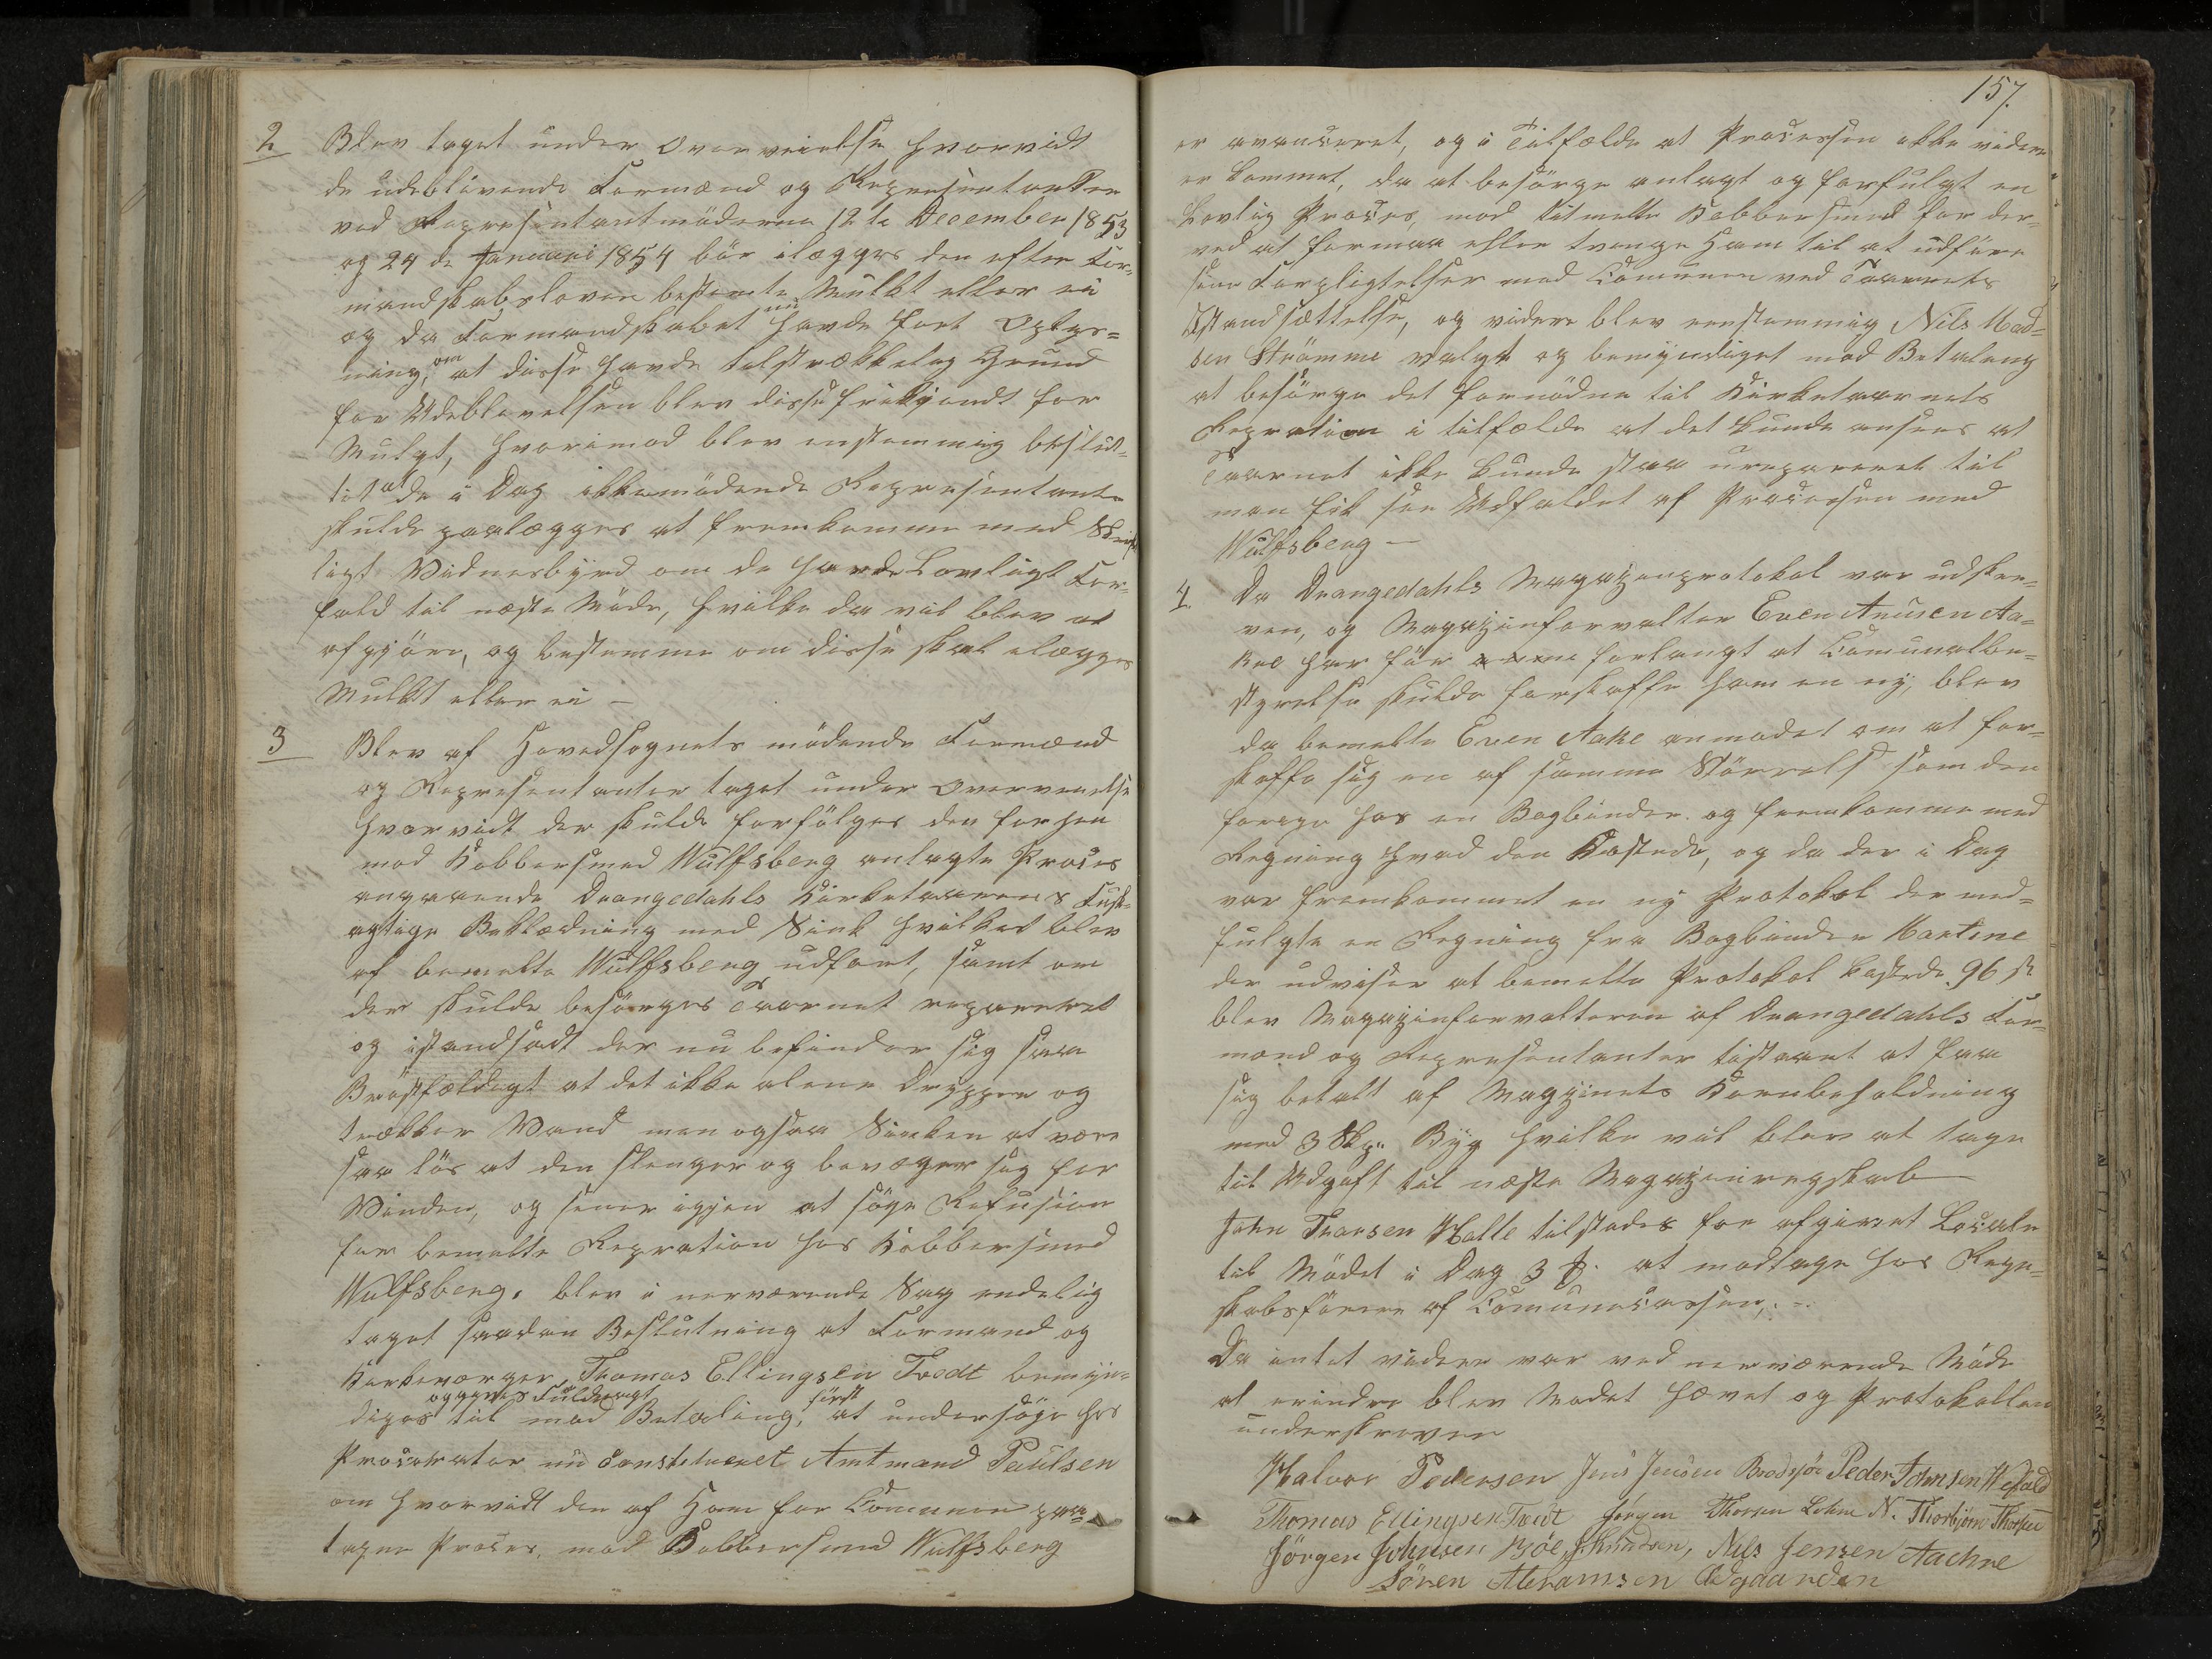 2 Blev taget under Overveielse hvorvidt
de udeblivende Formænd og Repræsentanter
ved Repræsentantmöderne 12te December 1853
og 24de Januari 1854 bör ilægges den efter For-
mandskabsloven bestemte Mulkt eller ei
og da Formandskabet nu havde faat Oplys-
ning, om at disse havde tilstrækkelig Grund
for Udeblivelsen blev disse frikjendt for
Mulgt, hvorimod blev enstemmig beslut-
tet at de i Dag ikkemödende Representante
skulde paalægges at fremkomme med Skrift
ligt Vidnesbyrd om de havde Lovligt For-
fald til næste Möde, hvilke da vil blev at
afgjöre, og bestemme om disse skal ilægges
Mulkt eller ei –
3 Blev af Hovedsognets mödende Formænd
og Representanter taget under Overveielse
hvorvidt der skulde forfölges den forhen
mod Kobbersmed Wulfsberg anlagte Proces
angaaende Drangedahls Kirketaarns Fusk-
agtige Beklædning med Sink hvilket blev
af bemelte Wulfsberg udfört, samt om
der skulde besörges Taarnet repareret
og istandsadt der nu befinder sig saa
Bröstfældigt at det ikke alene Drypper og
trækker Vand men ogsaa Sinken at være
saa lös at den slenger og bevæger sig for
Vinden, og siner igjen at söge Refusion
for bemelte Repration hos Kobbersmed
Wulfsberg. blev i nerværende Sag endelig
taget saadan Beslutning at Formand og
Kirkeværger, Thomas Ellingsen Tvedt bemyn-
diges og gives Fuldmagt til mod Betaling, först at undersöge hos
Procurator nu Constitueret Amtmand Paulsen
om hvorvidt den af Ham for Comunen paa-
tagne Proces, mod Kobbersmed Wulfsberg
157.
er avanceret, og i Tilfælde at Processen ikke videre
er kommet, da at besörge anlagt og forfulgt en
Lovlig Proces, mod bemelte Kobbersmed for der-
ved at formaa eller tvenge Ham til at udföre
sine Forpligtelser mod Comunen ved Taarnets
Istandsættelse, og videre blev eenstemmig Nils Mad-
sen Strömme valgt og bemyndiget mod Betaling
at besörge det fornödne til Kirketaarnets
Repration i tilfælde at det kunde ansees at
Taarnet ikke kunde staa urepareret til
man fik see Udfaldet af Processen med
Wulfsberg –
4. Da Drangedahls Magazinprotokol var udskre-
ven, og Magazinforvalter Even Anusen Aa-
kee har för forlangt at Comunalbe-
styrelse skulde forskaffe ham en ny, blev
da bemelte Even Aake anmodet om at for-
skaffe sig en af samme Störrels som den
forige hos en Bogbinder. og fremkomme med
Regning hvad den Kostede, og da der i Dag
var fremkommet en ny Protokol der med-
fulgte en Regning fra Bogbinder Martine
der udviser at bemelte Protokol kostede. 96 s
blev Magazinforvalteren af Drangedahls For-
mænd og Representanter tilstaaet at faa
sig betalt af Magzinets Kornbeholdning
med 3 Skp. Byg hvilke vil blev at tage
til Udgift til næste Magazinregskab
John Tharsen Walle tilstodes for afgivet Locale
til Mödet i Dag 3 ₰. at modtage hos Regn-
skabsförere af Comunecassen,. –.
Da intet videre var ved nerværende Möde
at erindre blev Mödet hævet og Protokollen
underskreven
Halvor Pedersen Jens Jensen Brödsjöe Peder Johnsen Wefald
Thomas Ellingsen Tvedt Jörgen Thorsen Lohne N. Thorbjörn Thorsen
Jörgen Johnsen Böe, J. Knudsen, Nils Jensen Aachre
Sören Abramsen Ödgaarden